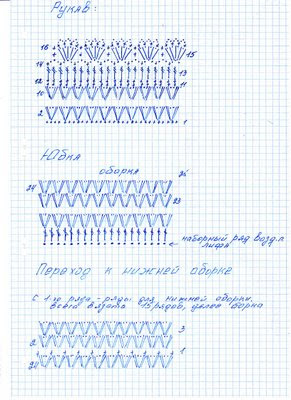 Рукав:
16 15
14 13
12 11
10
2 1
Юбка
оборка
24 25
23
наборный ряд возд.п
лифа
Переход к нижней оборке
С 1го ряда - ряды для нижней оборки.
Всего вязать 15 рядов,
3
2 1
24